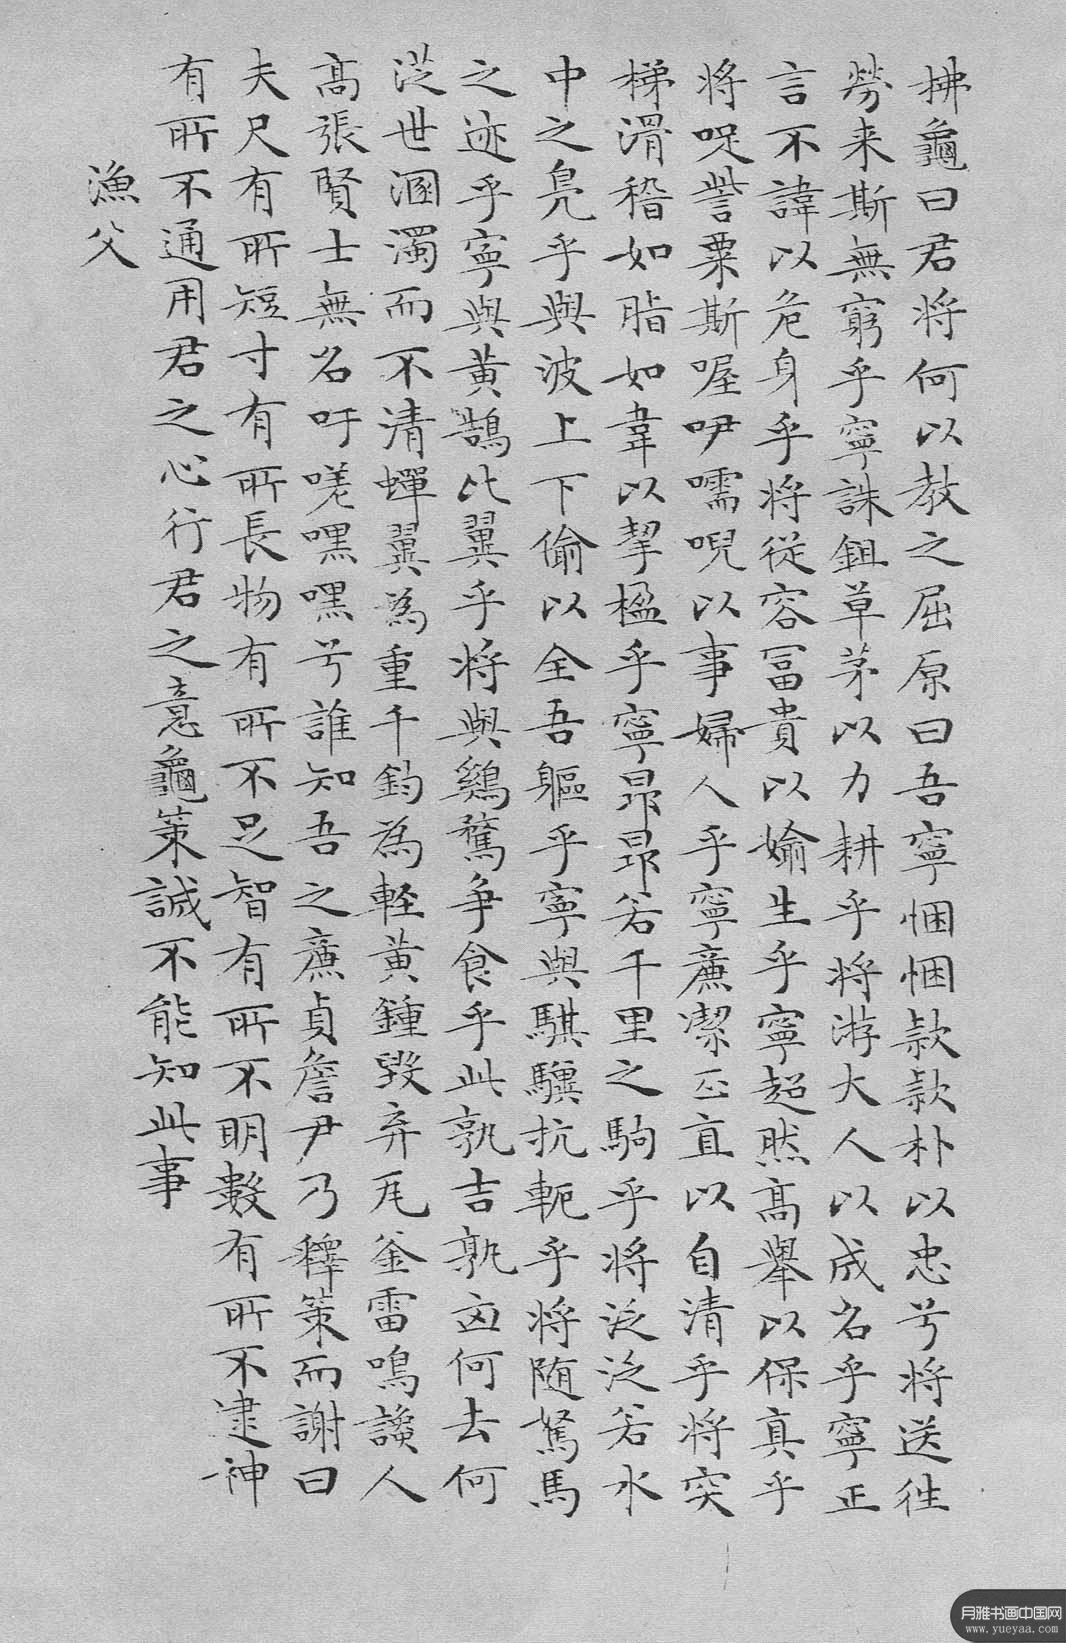 拂龜曰君将何以教之屈原曰吾寧悃悃款款朴以忠兮将送往
勞来斯無窮乎寧誅鉏草茅以力耕乎将游大人以成名乎寧正
言不諱以危身乎将從容冨貴以婾生乎寧超然髙舉以保真乎
将哫訾粟斯喔咿嚅唲以事婦人乎寧廉潔正直以自清乎将突
梯滑稽如脂如韋以挈楹乎寧昂昂若千里之駒乎将泛泛若水
中之鳬乎與波上下偷以全吾軀乎寧與騏驥抗軛乎将随駑馬
之迹乎寧與黄鵠比翼乎将與鷄鶩争食乎此孰吉孰凶何去何
從世溷濁而不清蟬翼爲重千鈞為輕黄鍾毀弃瓦釜雷鳴讒人
髙張賢士無名吁嗟嘿嘿兮誰知吾之廉貞詹尹乃釋策而謝曰
夫尺有所短寸有所長物有所不足智有所不明數有所不逮神
有所不通用君之心行君之意龜策誠不能知此事
漁父
月雅书画中国网
www.yueyaa.com